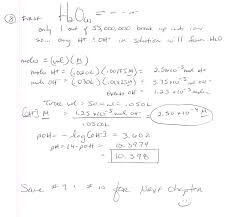 ⑧ FIRST H₂O(l) =
only 1 out of 55,000,000 break up into ions
so... any H⁺ & OH⁻ in solution will form H₂O
moles = (vol)(M)
moles H⁺ = (.020L)(.00125M) = 2.50x10⁻⁵ mol H⁺
mol OH⁻ = (.030L)(.00125M) = 3.75 x 10⁻⁵ mol OH⁻
excess OH⁻ = 1.25 x 10⁻⁵ mol
Total vol = 50 mL = .050L
[OH⁻] M = 1.25 x10⁻⁵ mol OH⁻ / .050L = 2.50 x10⁻⁴ M
pOH = -log[OH⁻] = 3.602
pH = 14 - pOH = 10.3979
= 10.398
Save #9 & #10 for next chapter